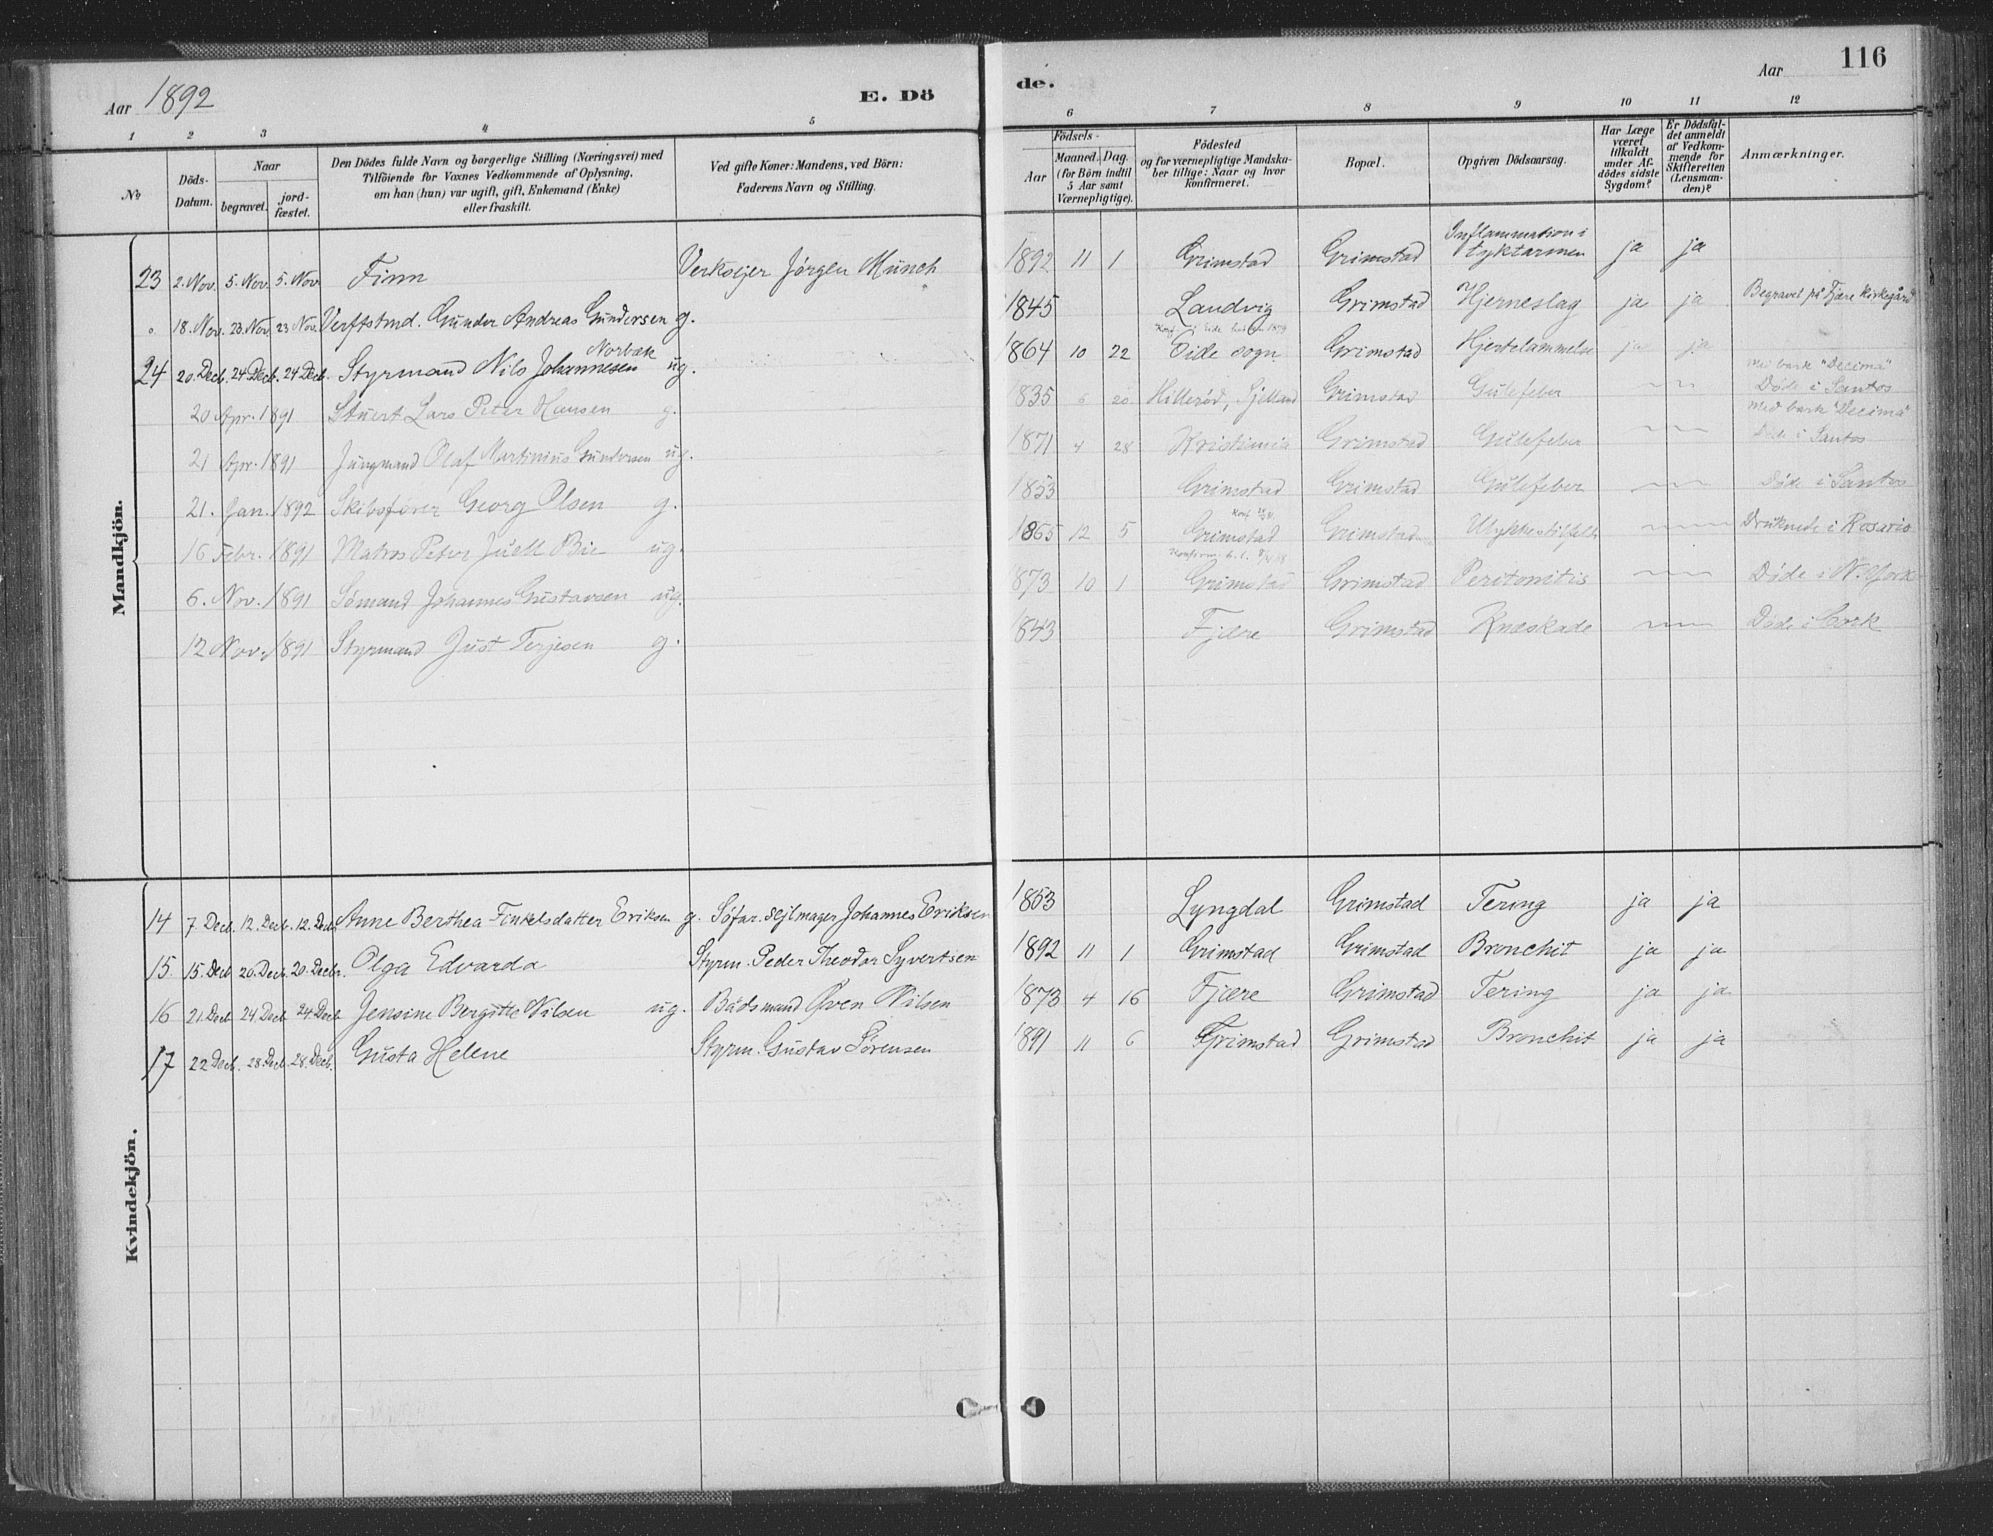 Aar 1892 E. Dö de. Aar 116
1 2 3 4 5 6 7 8 9 10 11 12
№ Döds-Datum. Naar begravet. jord-fæstet. Den Dödes fulde Navn og borgerlige Stilling (Næringsvei) med Tilföiende for Voxnes Vedkommende af Oplysning, om han (hun) var ugift, gift, Enkemand (Enke) eller fraskilt. Ved gifte Koner: Mandens, ved Börn: Faderens Navn og Stilling. Födsels- Aar Maaned. Dag. (for Börn indtil 5 Aar samt Værnepligtige). Födested og for værnepligtige Mandskaber tillige: Naar og hvor konfirmeret. Bopæl. Opgiven Dödsaarsag. Har Læge været tilkaldt under Afdödes sidste Sygdom? Er Dödsfaldet anmeldt af Vedkommende for Skifteretten (Lensmanden)? Anmærkninger.
Mandkjön.
23 2. Nov. 5. Nov. 5. Nov. Finn Verkseijer Jörgen Münch 1892 11 1 Grimstad Grimstad Inflammation i tyktarmen ja ja
18. Nov. 23. Nov. 23 Nov. Verftstmd. Gunder Andreas Gundersen g. 1845 Landvig Grimstad Hjerneslag ja ja Begravet på Fjære kirkegård
24 20. Decb. 24 Decb. 24 Decb. Styrmand Nils Johannesen Norbæk ug. 1864 10 22 Eide sogn Grimstad Hjertelammelse ja ja
20 Apr. 1891 Stuert Lars Peter Hansen g. 1835 6 20 Hilleröd, Sjelland Grimstad Gulefeber Med bark "Decima" Døde i Santos
21 Apr. 1891 Jungmand Olaf Martinius Gundersen ug. 1871 4 28 Kristiania Grimstad Gulefeber Med bark "Decima" Døde i Santos
21. Jan. 1892 Skibsfører Georg Olsen g. 1853 Grimstad Grimstad Gulefeber Døde i Santos
16 Febr. 1891 Matros Peter Juell Bie ug. 1865 12 5 Grimstad Grimstad Ulykkestilfælde Druknede i Rosario
6. Nov. 1891 Sømand Johannes Gustavsen ug. 1873 10 1 Grimstad Grimstad Peritonitis Døde i N. York
12 Nov. 1891 Styrmand Just Terjesen g. 1843 Fjære Grimstad Knæskade Døde i Cork
Kvindekjön.
14 7 Decb. 12. Decb. 12. Decb. Anne Berthea Finkelsdatter Eriksen g. Söfar. Sejlmager Johannes Eriksen 1853 Lyngdal Grimstad Tering ja ja
15. 15. Decb 20. Decb. 20. Decbr. Olga Edvarda Styrm. Peder Theodor Syvertsen 1892 11 1 Grimstad Grimstad Bronchit ja ja
16 21. Decb 24. Decb 24. Decb Jensine Bergitte Nilsen ug. Bådsmand Øven Nilsen 1873 4 16 Fjære Grimstad Tering ja ja
17 22. Decb. 28. Decb. 28. Decb. Gusta Helene Styrm. Gustav Sörensen 1891 11 6 Grimstad Grimstad Bronchit ja ja